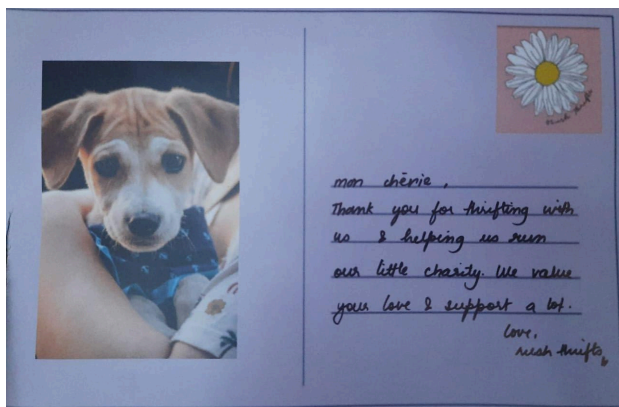 mon chērie,
Thank you for thrifting with
us & helping us run
our little charity. We value
your love & support a lot.
love,
rush thrifts